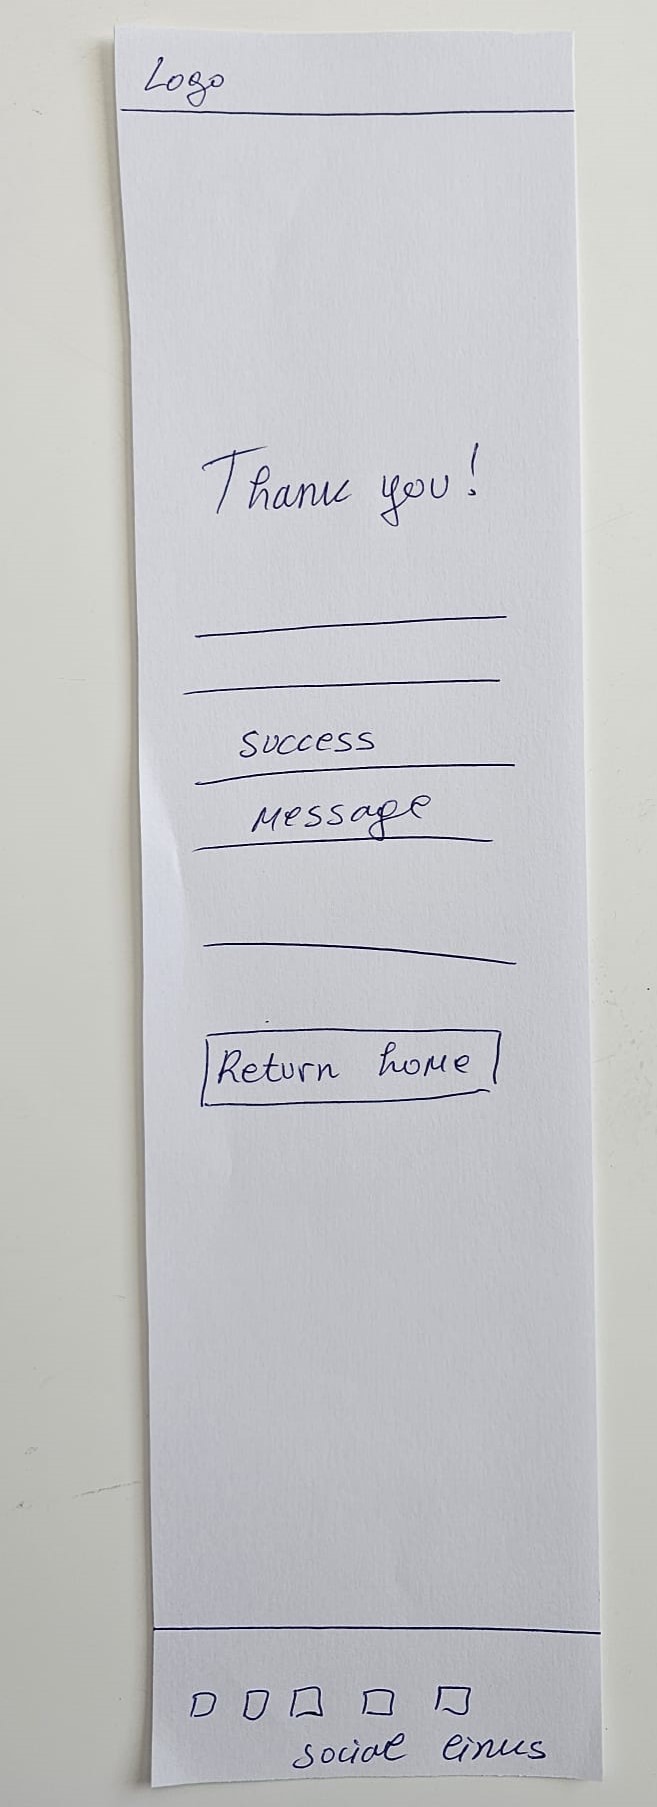 Logo
Thank you!
success
Message
Return home
social links